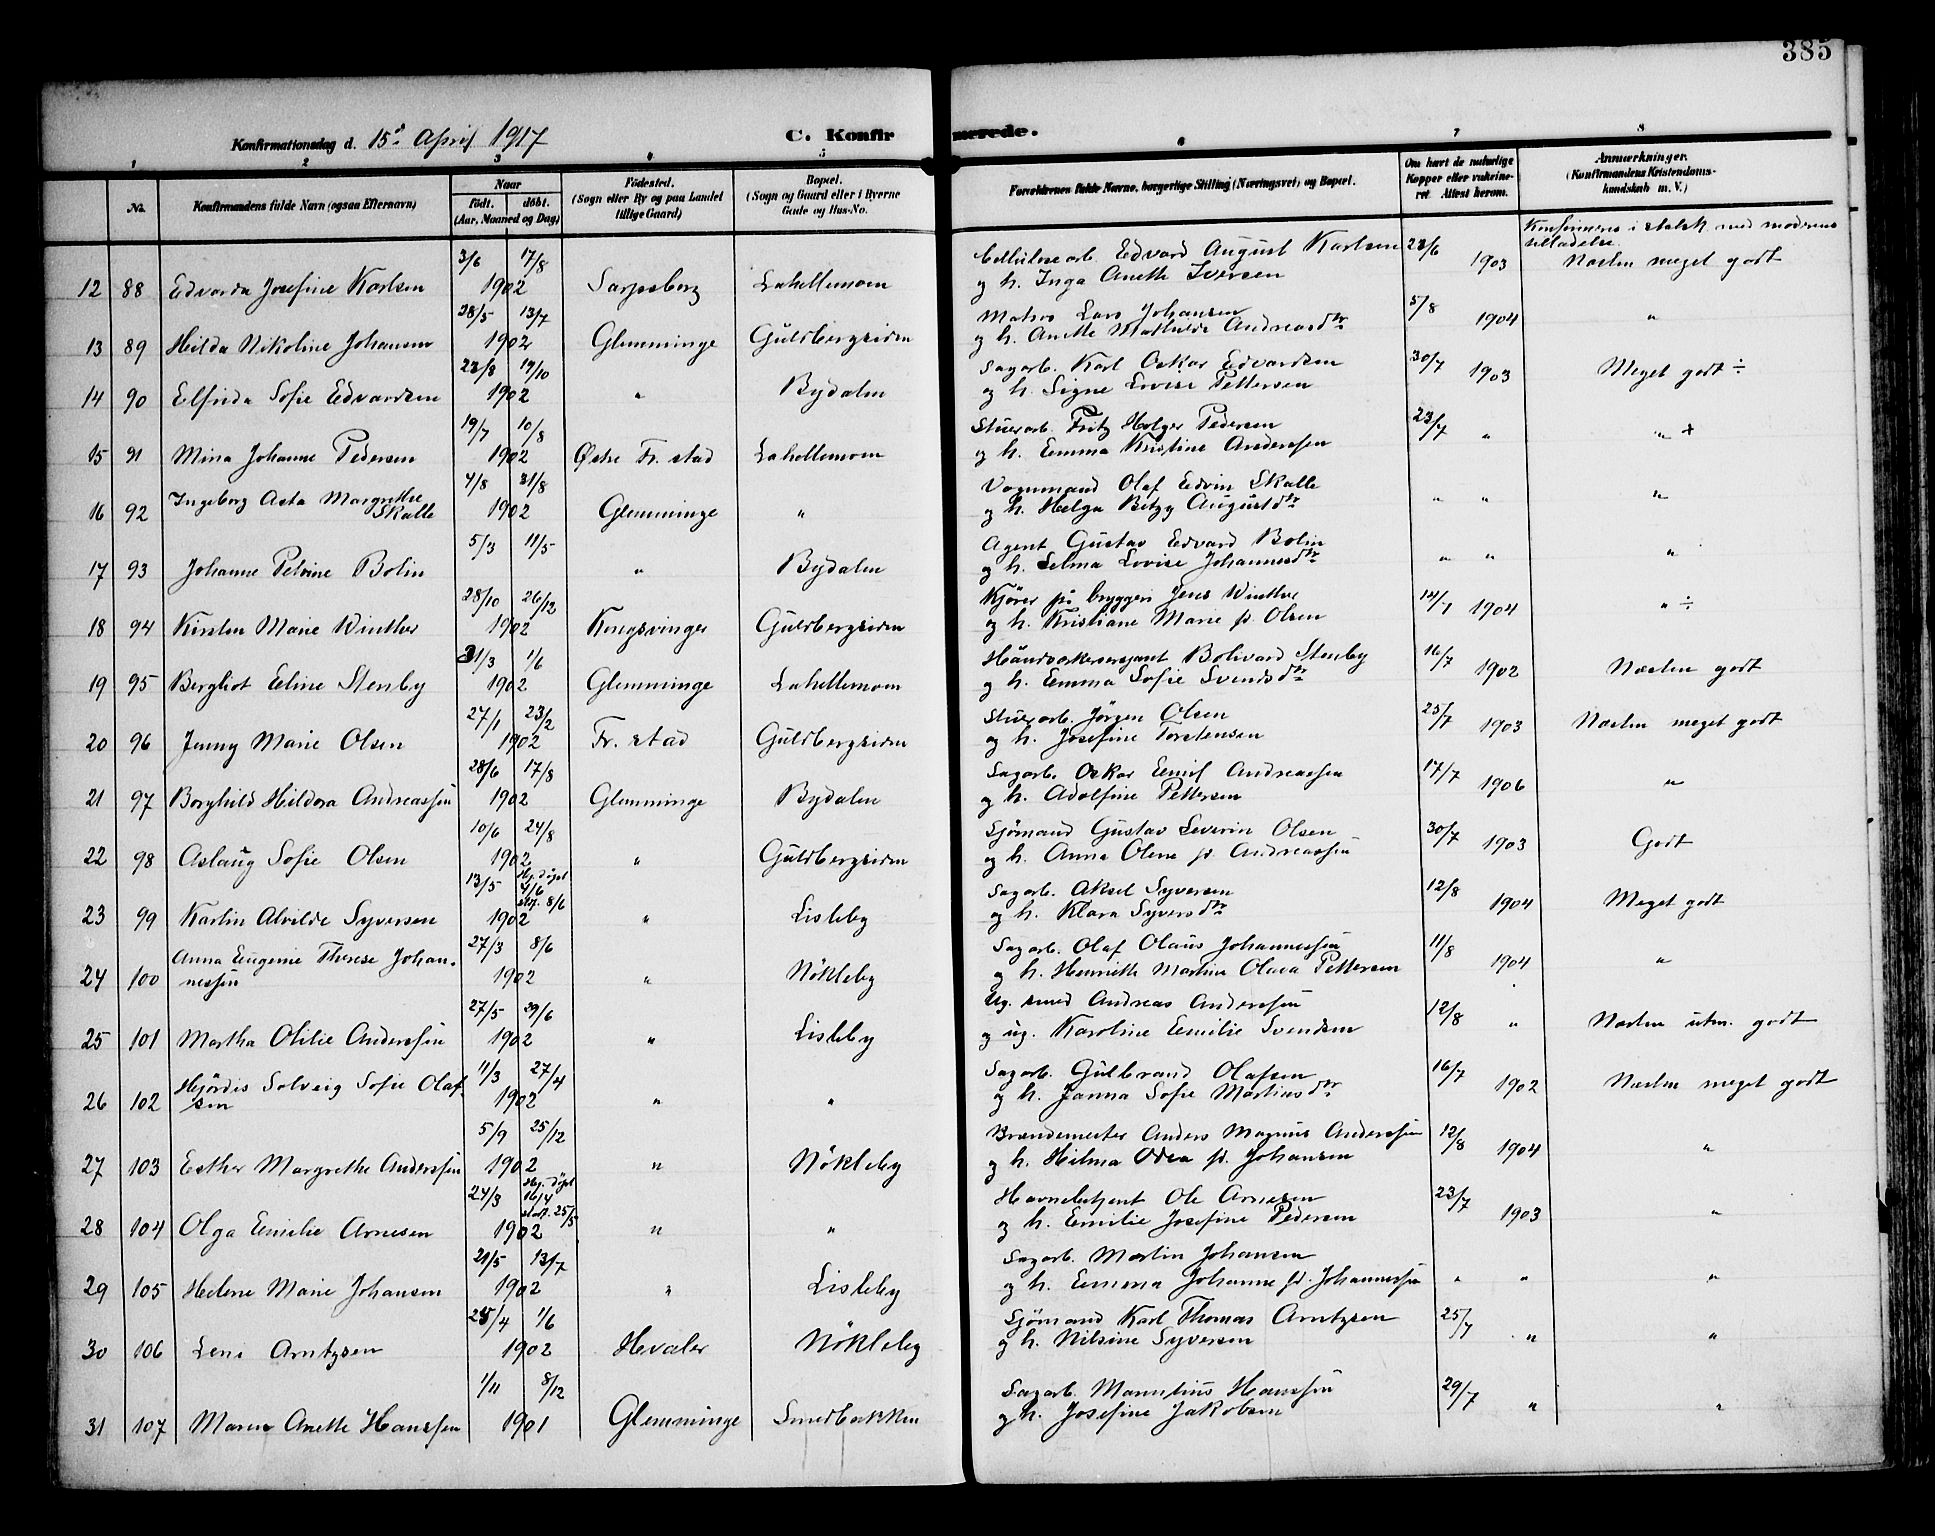 385
Konfirmationsdag d. 15de April 1917
C. Konfirmerede.
1 2 3 4 5 6 7 8
No.
Konfirmandens fulde Navn (ogsaa Efternavn)
Naar
født. døbt.
(Aar, Maaned og Dag)
Fødested.
(Sogn eller By og paa Landet
tillige Gaard)
Bopæl.
(Sogn og Gaard eller i Byerne
Gade og Hus-No.
Forældrenes fulde Navne, borgerlige Stilling (Næringsvei) og Bopæl.
Om havt de naturlige
Kopper eller vakcine-
ret Attest herom.
Anmærkninger.
(Konfirmandens Kristendoms-
kundskab m. V.)
Konfirmeres i statsk. med moderens
tilladelse.
3/6 17/8 Cellulosearb. Edvard August Karlsen 23/6
12 88 Edvarda Josefine Karlsen 1902 Sarpsborg Lahellemoen og h. Inga Anette Iversen 1903 Næsten meget godt
28/5 13/7 Matros Lars Johansen 5/8
13 89 Hilda Nikoline Johansen 1902 Glemminge Guldbergsiden og h. Anette Mathilde Andreasdtr 1904 "
23/8 19/10 Sagarb. Karl Oskar Edvardsen 30/7
14 90 Elfrida Sofie Edvardsen 1902 " Bydalen og h. Signe Lovise Pettersen 1903 Meget godt ÷
19/7 10/8 Stuerarb. Fritz Holger Pedersen 23/7
15 91 Mina Johanne Pedersen 1902 Østre Fr. stad Lahellemoen og h. Emma Kristine Anderssen " " +
4/8 31/8 Vognmand Olaf Edvin Skalle
16 92 Ingeborg Asta Margrethe Skalle 1902 Glemminge " og h. Helga Betzy Augustdtr " " "
5/3 11/5 Agent Gustav Edvard Bolin
17 93 Johanne Petrine Bolin 1902 " Bydalen og h. Selma Lovise Johannesdtr " " "
28/10 26/12 Kjører på bryggeri Jens Winther 14/7
18 94 Kirsten Marie Winther 1902 Kongsvinger Guldbergsiden og h. Kristiane Marie f. Olsen 1904 " ÷
31/3 1/6 Håndværkersersjant Bolivard Stenby 16/7
19 95 Bergliot Eline Stenby 1902 Glemminge Lahellemoen og h. Emma Sofie Svendsdtr 1902 Næsten godt
27/1 23/2 Stuerarb. Jørgen Olsen 25/7
20 96 Jenny Marie Olsen 1902 Fr. stad Guldbergsiden og h. Josefine Torstensen 1903 Næsten meget godt
28/6 17/8 Sagarb. Oskar Emil Andreassen 17/7
21 97 Borghild Hildora Andreassen 1902 Glemminge Bydalen og h. Adolfine Pettersen 1906 "
10/6 24/8 Sjømand Gustav Severin Olsen 30/7
22 98 Aslaug Sofie Olsen 1902 " Guldbergsiden og h. Anna Olene f. Andreassen 1903 Godt
13/5 Hj. døpt 4/6 stf. 8/6 Sagarb. Aksel Syversen 12/8
23 99 Karlin Alvilde Syversen 1902 " Lisleby og h. Klara Syversdtr 1904 Meget godt
27/3 8/6 Sagarb. Olaf Olaus Johannessen 11/8
24 100 Anna Eugenie Therese Johannessen 1902 " Nøkleby og h. Henriette Martine Olava Pettersen 1904 "
27/5 29/6 Ug. smed Andreas Anderssen 12/8
25 101 Martha Otilie Anderssen 1902 " Lisleby og ug. Karoline Emilie Svendsen " Næsten utm. godt
11/3 27/4 Sagarb. Gulbrand Olafsen 16/7
26 102 Hjørdis Solveig Sofie Olafsen 1902 " " og h. Janna Sofie Martinsdtr 1902 Næsten meget godt
5/9 25/12 Brandmester Anders Magnus Anderssen 12/8
27 103 Esther Margrethe Anderssen 1902 " Nøkleby og h. Hilma Odea f. Johansen 1904 "
24/3 Hj. døpt 16/4 stadf. 25/5 Havnebetjent Ole Arnesen 23/7
28 104 Olga Emilie Arnesen 1902 " " og h. Emilie Josefine Pedersen 1903 "
21/5 13/7 Sagarb. Martin Johansen
29 105 Helene Marie Johansen 1902 " Lisleby og h. Emma Johanne f. Johannessen " " "
25/4 1/6 Sjømand Karl Thomas Arntzsen 25/7
30 106 Leni Arntzsen 1902 Hvaler Nøkleby og h. Nilsine Syversen " "
1/11 8/12 Sagarb. Manntius Hanssen 29/7
31 107 Maren Anette Hanssen 1901 Glemminge Smedbakken og h. Josefine Jakobsen " "